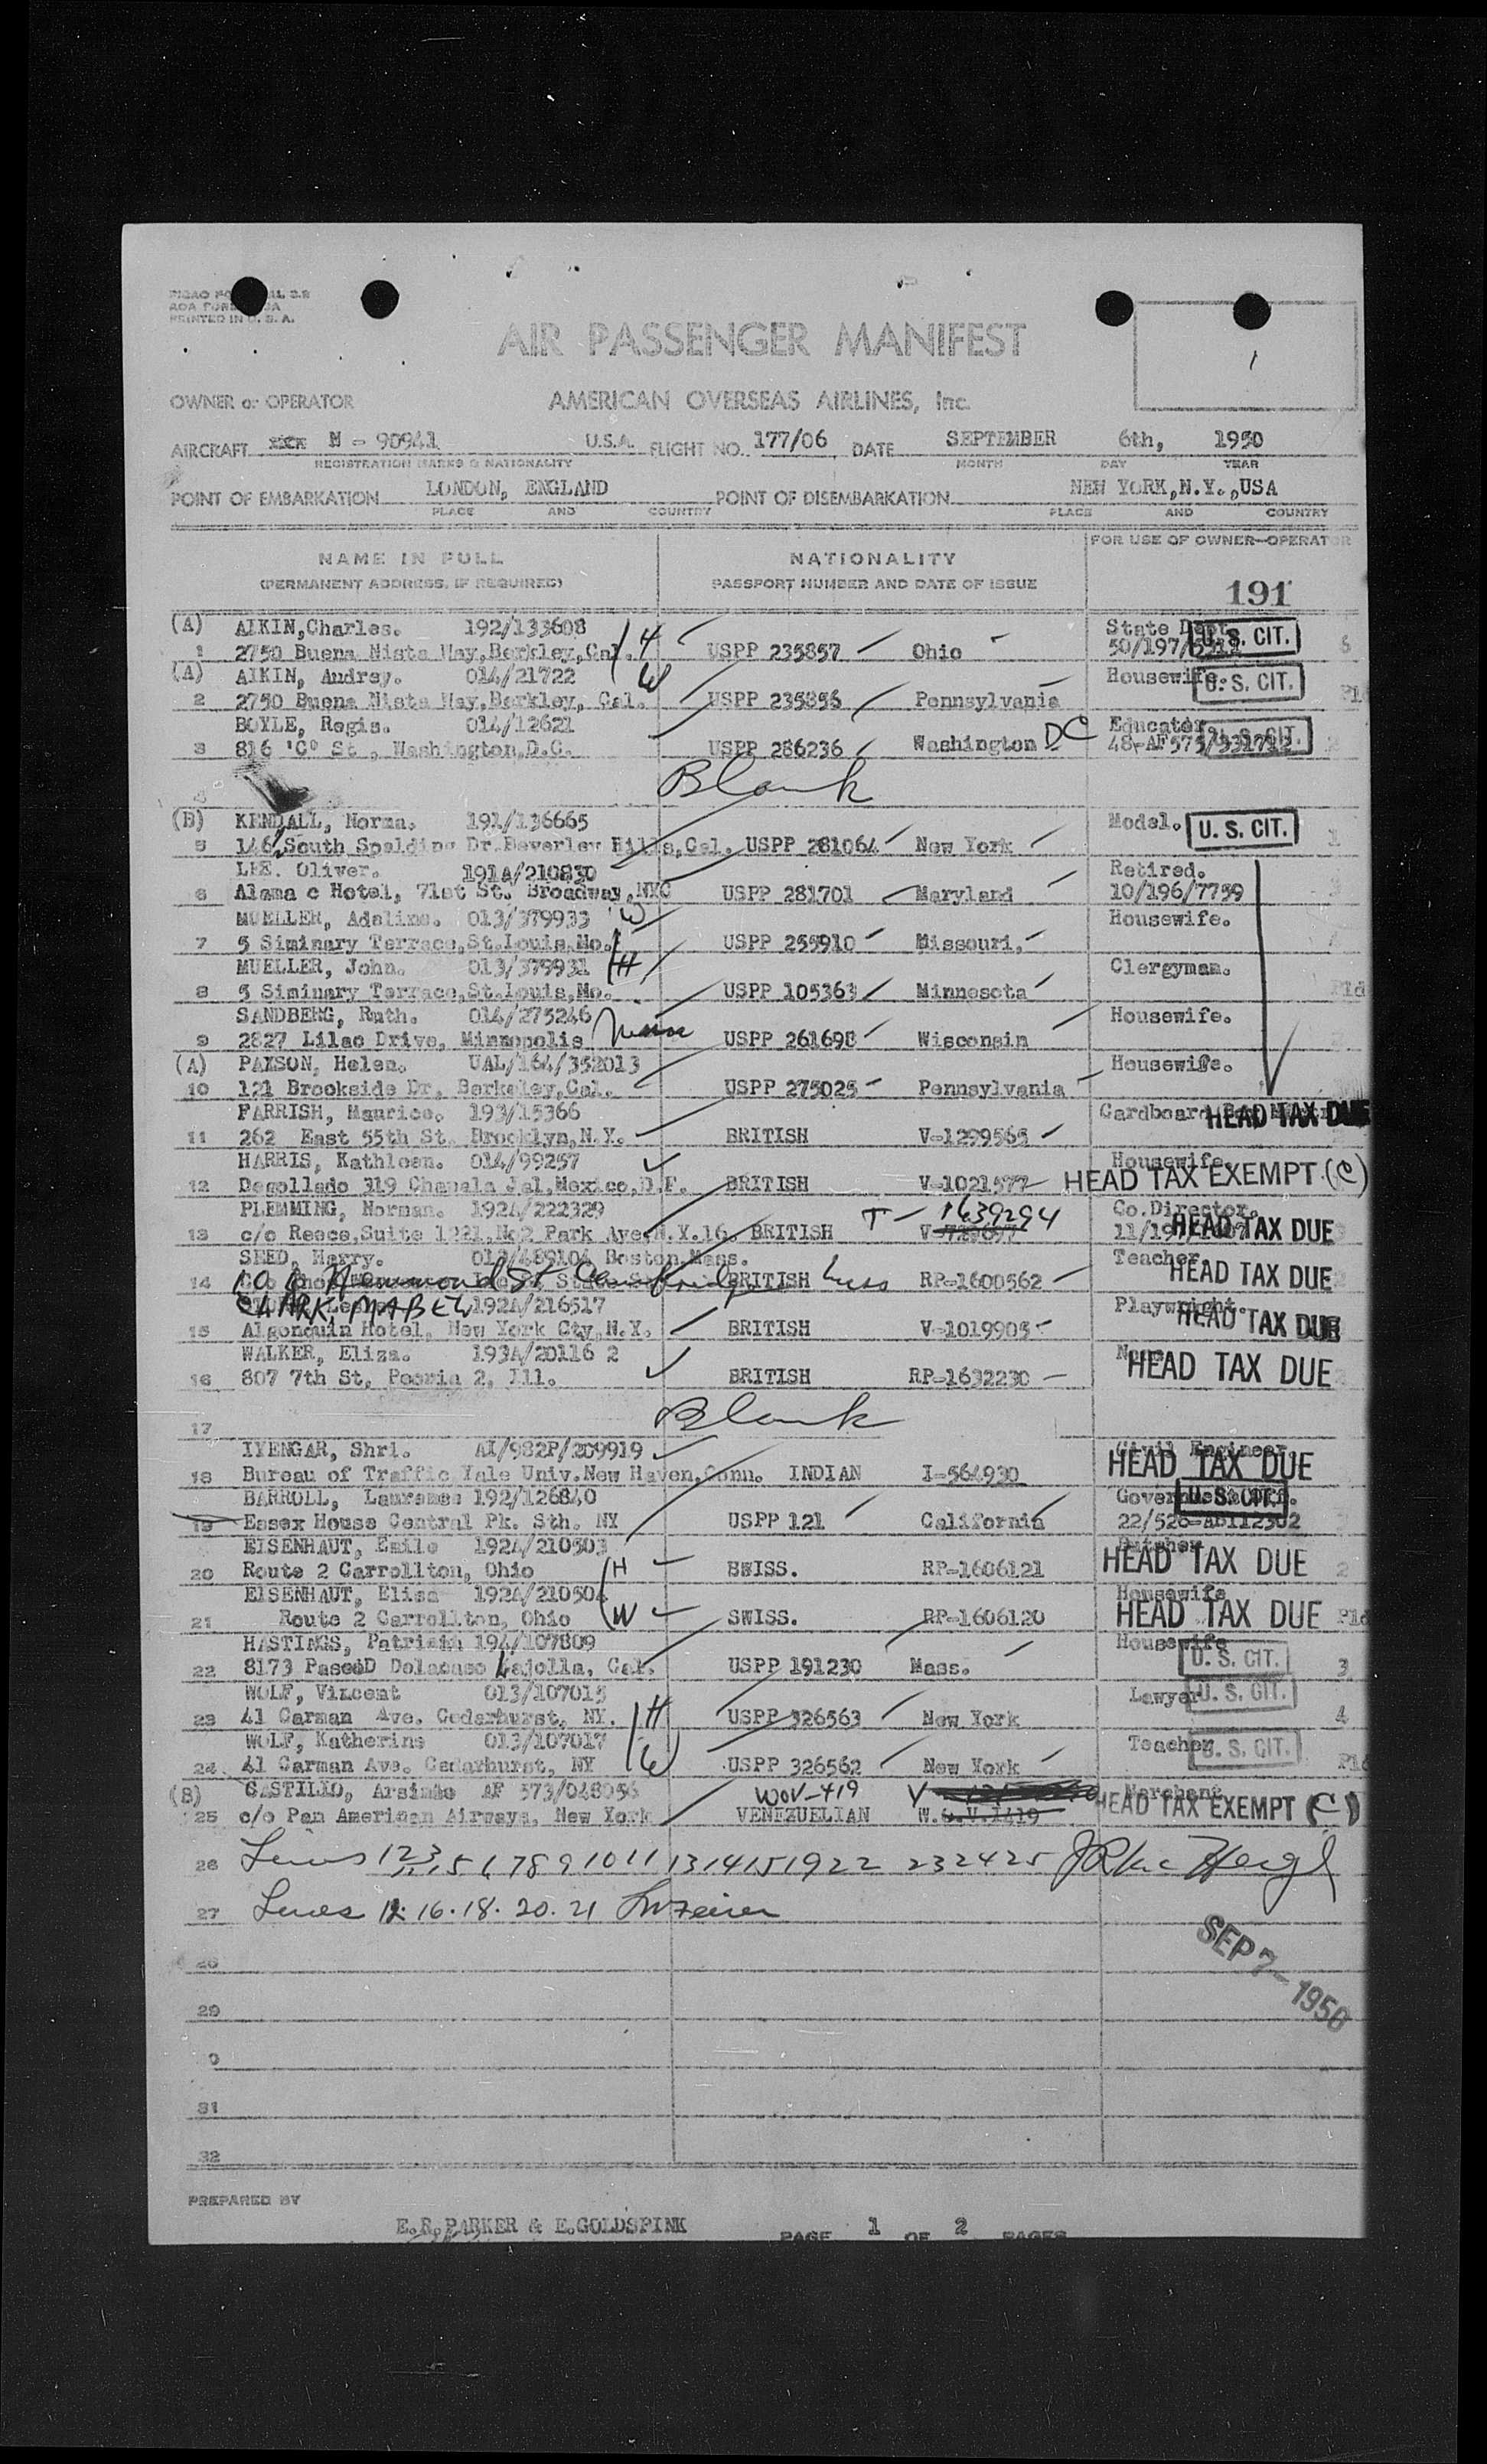 PRINTED IN U. S. A.
AIR PASSENGER MANIFEST
OWNER or OPERATOR AMERICAN OVERSEAS AIRLINES, Inc.
AIRCRAFT N - 90941 U.S.A. FLIGHT NO. 177/06 DATE SEPTEMBER 6th, 1950
REGISTRATION MARKS & NATIONALITY MONTH DAY YEAR
POINT OF EMBARKATION LONDON, ENGLAND POINT OF DISEMBARKATION NEW YORK,N.Y.,USA
PLACE AND COUNTRY PLACE AND COUNTRY
FOR USE OF OWNER-OPERATOR
NAME IN FULL NATIONALITY
(PERMANENT ADDRESS, IF REQUIRED) PASSPORT NUMBER AND DATE OF ISSUE
191
(A) AIKIN,Charles. 192/133608 State Dept. U.S. CIT.
1 2750 Buena Nista Way,Berkley,Cal. H USPP 235857 Ohio 50/197/
(A) AIKIN, Audrey. 014/21722 W Housewife. U.S. CIT.
2 2750 Buena Nista Way,Berkley, Cal. USPP 235856 Pennsylvania
BOYLE, Regis. 014/12621 Educator U.S. CIT.
3 816 'C' St , Washington,D.C. USPP 286236 Washington DC 48-AF575/
Blank
(B) KENDALL, Norma. 191/136665 Model. U. S. CIT.
5 146,South Spalding Dr.Beverley Hills,Cal. USPP 281064 New York 1
LEE. Oliver. 191A/210830 Retired.
6 Alama c Hotel, 71st St. Broadway,NYC USPP 281701 Maryland 10/196/7759
MUELLER, Adaline. 013/379933 W Housewife.
7 5 Siminary Terrace,St.Louis,Mo. USPP 255910 Missouri.
MUELLER, John. 013/379931 H Clergyman.
8 5 Siminary Terrace,St.Louis,Mo. USPP 105363 Minnesota
SANDBERG, Ruth. 014/275246 Housewife.
9 2827 Lilac Drive, Minnopolis Minn USPP 261698 Wisconsin
(A) PAXSON, Helen. UAL/164/352013 Housewife.
10 121 Brookside Dr, Berkeley,Cal. USPP 275025 Pennsylvania
PARRISH, Maurice. 193/15366 Cardboard HEAD TAX DUE
11 262 East 55th St. Brooklyn,N.Y. BRITISH V-1299565
HARRIS, Kathleen. 014/99257 Housewife.
12 Degollado 319 Chapala Jal,Mexico,D.F. BRITISH V-1021577 HEAD TAX EXEMPT (C)
PLEMMING, Norman. 192A/222329 T - 1639294 Co.Director.
13 c/o Reece,Suite 1221,No2 Park Ave,N.Y.16. BRITISH HEAD TAX DUE
SEED, Harry. 013/489104 Boston,Mass. Teacher
14 Hammond St Cambridge Mass BRITISH RP-1600562 HEAD TAX DUE
CLARK, MABEL 192A/216517 Playwright.
15 Algonquin Hotel, New York Cty,N.Y. BRITISH V-1019905 HEAD TAX DUE
WALKER, Eliza. 193A/20116 2 None
16 807 7th St, Peoria 2, Ill. BRITISH RP-1632230 HEAD TAX DUE
17 Blank
IYENGAR, Shri. AI/982P/209919 Civil Engineer.
18 Bureau of Traffic Yale Univ.New Haven,Conn. INDIAN I-564930 HEAD TAX DUE
BARROLL, Laurence 192/126840 U.S.CIT.
19 Essex House Central Pk. Sth. NY USPP 121 California
EISENHAUT, Emile 192A/210503 Butcher
20 Route 2 Carrollton, Ohio H SWISS. RP-1606121 HEAD TAX DUE 2
EISENHAUT, Elisa 192A/210504 Housewife
21 Route 2 Carrollton, Ohio W SWISS. RP-1606120 HEAD TAX DUE
HASTINGS, Patricia 194/107809 Housewife
22 8173 PaseoD Delacaso Lajolla, Cal. USPP 191230 Mass. U. S. CIT. 3
WOLF, Vincent 013/107015 Lawyer U. S. CIT.
23 41 Carman Ave. Cedarhurst, NY. H USPP 326563 New York 4
WOLF, Katherine 013/107017 Teacher U. S. CIT.
24 41 Carman Ave. Cedarhurst, NY W USPP 326562 New York
(B) CASTILLO, Arsimio AF 573/048056 WOV-419 V Merchant
25 c/o Pan American Airways, New York VENEZUELIAN W.O.V.1419 HEAD TAX EXEMPT (C)
26 Lines 1 2 3 5 6 7 8 9 10 11 13 14 15 19 22 23 24 25
27 Lines 12. 16. 18. 20. 21
SEP 7 - 1950
28
29
0
31
32
PREPARED BY
E.R.PARKER & E.GOLDSPINK PAGE 1 OF 2 PAGES